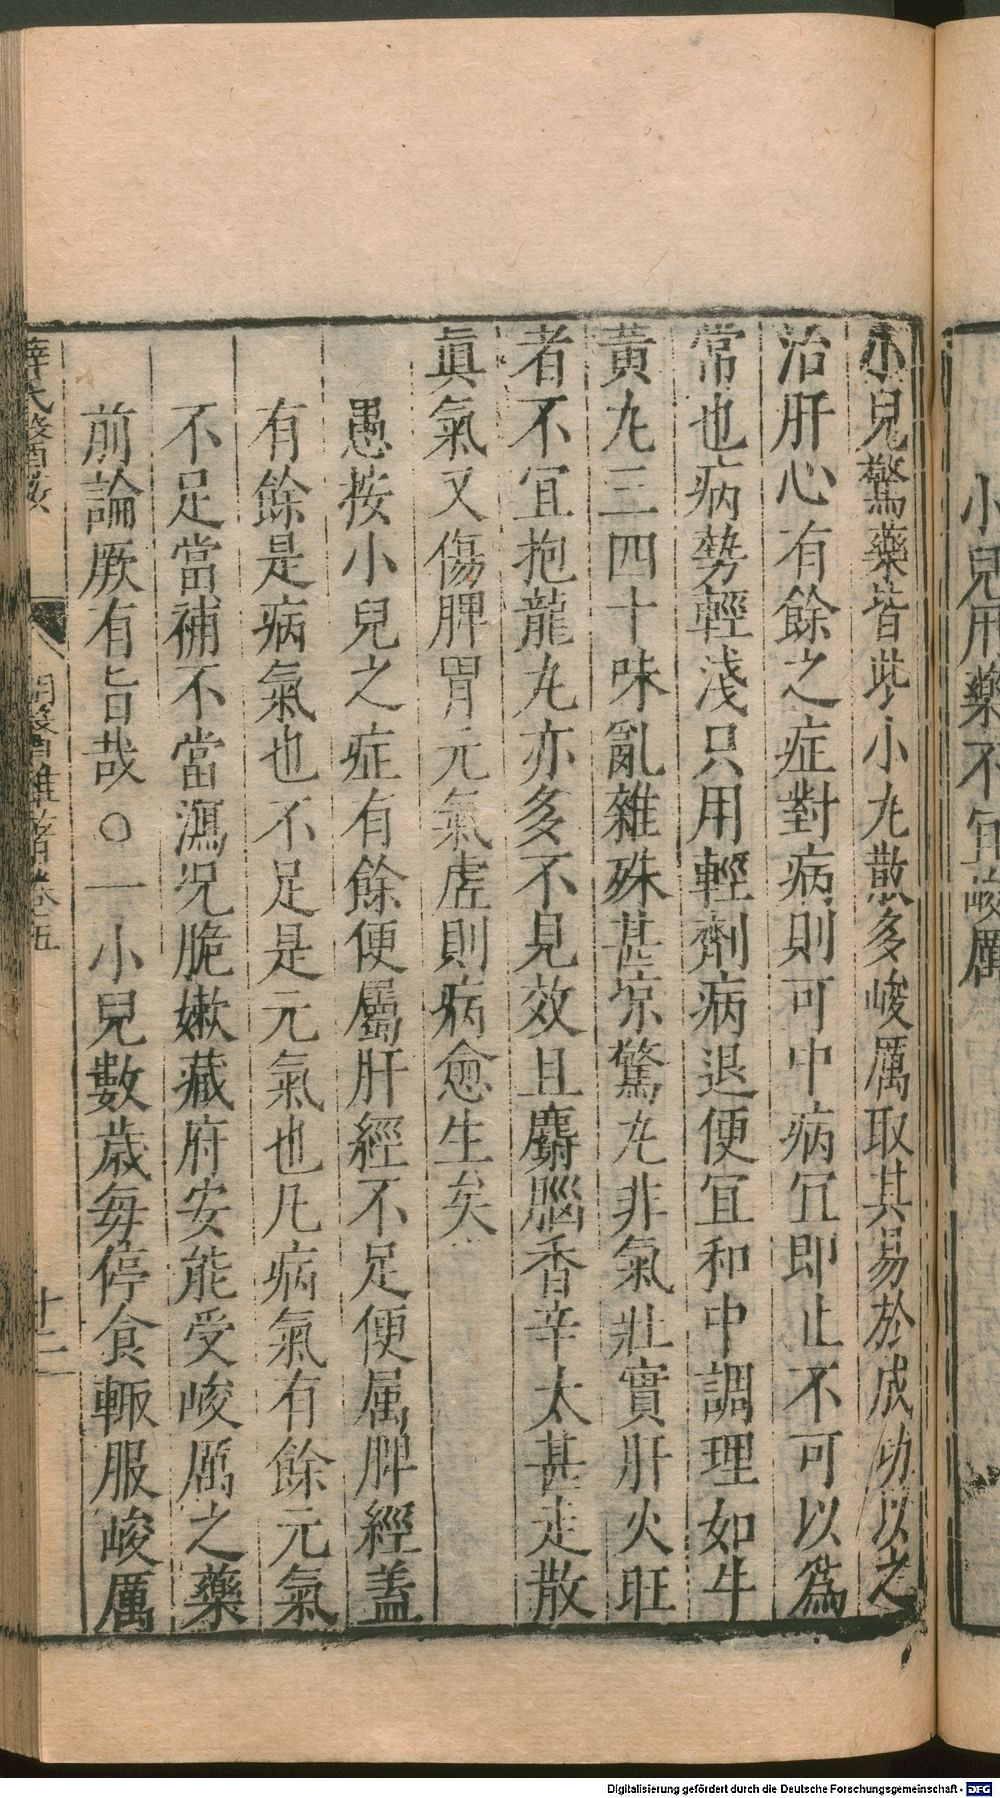 小兒用藥不宜峻厲
小兒驚藥皆此小丸散多峻厲取其易於成功以之
治肝心有餘之症對病則可中病冝即止不可以爲
常也病勢輕淺只用輕劑病退便冝和中調理如牛
黃丸三四十味亂雜殊甚凉驚丸非氣壯實肝火旺
者不冝抱龍丸亦多不見效且麝腦香辛太甚走散
眞氣又傷脾胃元氣虗則病愈生矣
愚按小兒之症有餘便屬肝經不足便属脾經蓋
有餘是病氣也不足是元氣也凡病氣有餘元氣
不足當補不當瀉况脆嫰藏府安能受峻厲之藥
前論厥有旨哉○一小兒數歳每停食輙服峻厲
薛氏醫案
明醫雜著卷五
十二
Digitalisierung gefördert durch die Deutsche Forschungsgemeinschaft - DFG